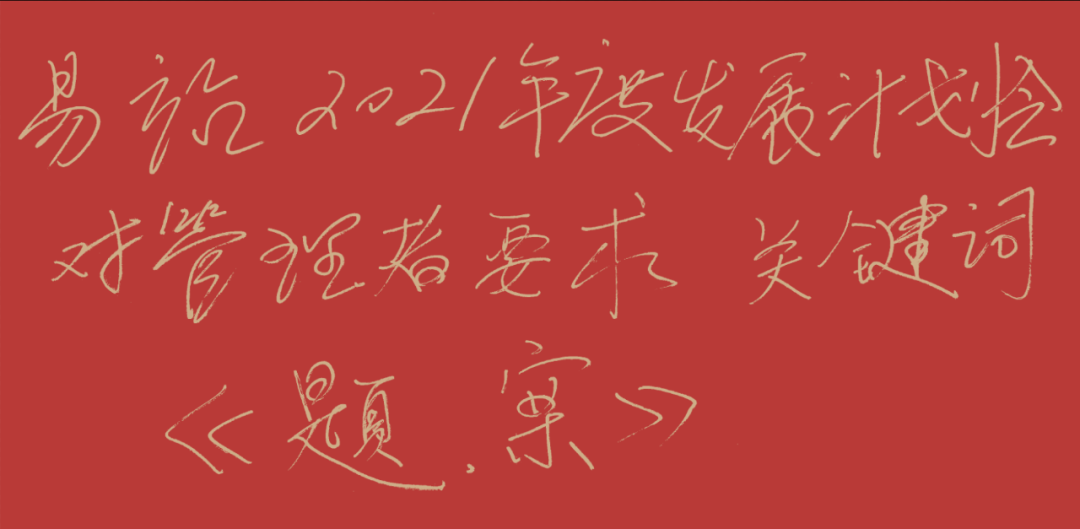 易 2021年度发展计划会
对管理者要求 关键词
《題.案》